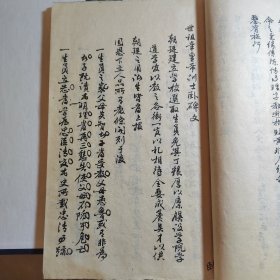 世祖章皇帝訓士臥碑文
朝廷建立學校選取生員免其丁糧厚以廩膳設學院學
道學官以教之各衙官以礼相待全要成賢才以供
朝廷之用諸生皆當上報
國恩下立人品所有教條開列于後
一生員之家父母賢智子當受教父母愚魯或有非為
者子既讀書明理當再三懇告使父母不陷於危亡
一生員立志當學為忠臣清官書史所載忠清事蹟